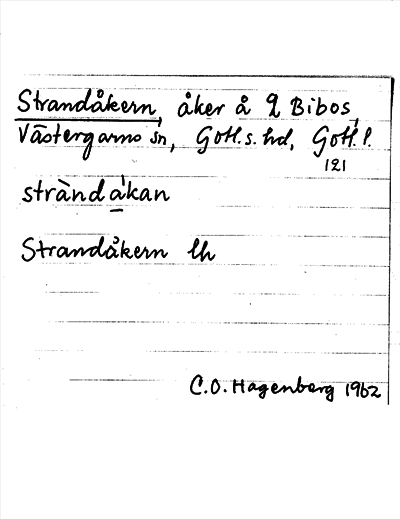 Strandåkern, åker å 2 Bibos,
Västergarns sn, Gotl. s. hd, Gotl. l.
121
stràndåkan
Strandåkern lh
C.O. Hagenberg 1962